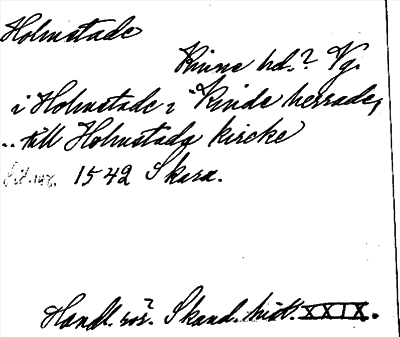 Holmstade
Kinne hd.? Vg.
i Holmstade i Kinde herrade,
.. till Holmstada kircke
1542 Skara.
Handl. rör? Skand. hist. XXIX.